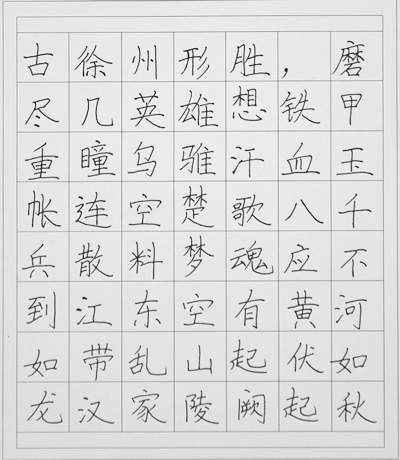 古徐州形胜，磨
尽几英雄想铁甲
重瞳乌骓汗血玉
帐连空楚歌八千
兵散料梦魂应不
到江东空有黄河
如带乱山起伏如
龙汉家陵阙起秋